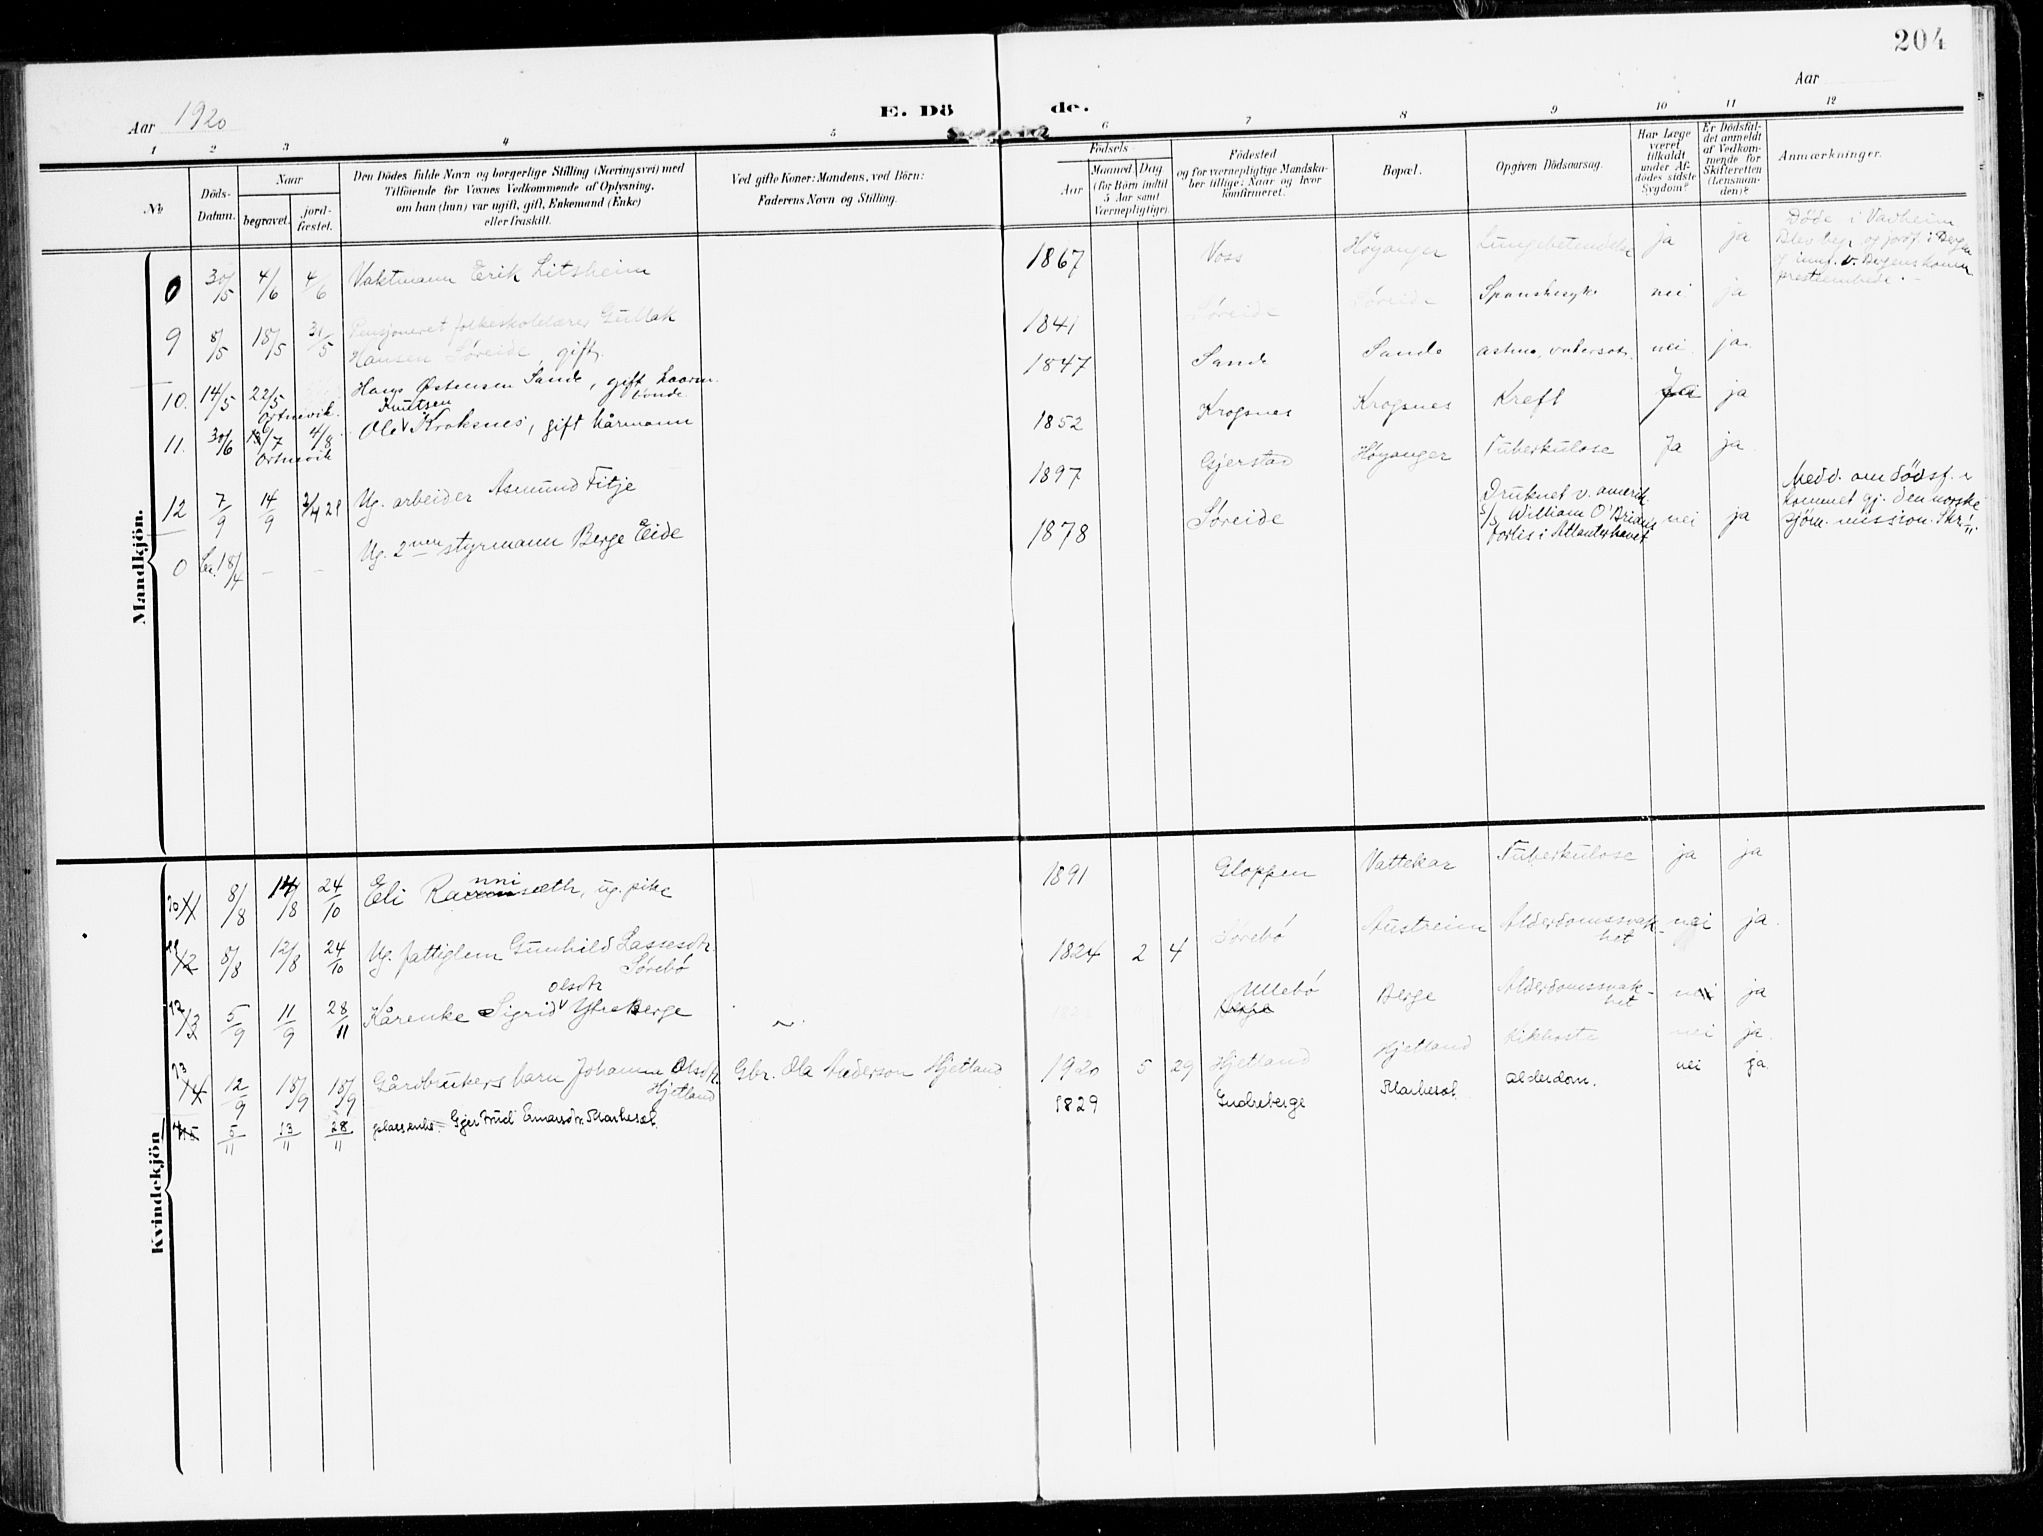 204
Aar 1920
E. Dö de.
Aar
1 2 3 4 5 6 7 8 9 10 11 12
No
Döds-
Datum.
Naar
begravet.
jord-
fæstet.
Den Dödes fulde Navn og borgerlige Stilling (Næringsvei) med
Tilföiende for Voxnes Vedkommende af Oplysning,
om han (hun) var ugift, gift, Enkemand (Enke)
eller fraskilt.
Ved gifte Koner: Mandens, ved Börn:
Faderens Navn og Stilling.
Födsels
Aar
Maaned Dag
(for Börn indtil
5 Aar samt
Værnepligtige)
Födested
og for værnepligtige Mandska-
ber tillige: Naar og hvor
konfirmeret.
Bopæl.
Opgiven Dödsaarsag.
Har Læge
været
tilkaldt
under Af-
dödes sidste
Sygdom?
Er Dödsfal-
det anmeldt
af Vedkom-
mende for
Skifteretten
(Lensman-
den)?
Anmærkninger.
Mandkjön.
0 30/5 4/6 4/6 Vaktmann Erik Litsheim 1867 Voss Høyanger Lungebetendelse ja ja
Døde i Vadheim
Blev begr. og jordf. i Bergen
prestembede.
9 8/5 18/5 31/5 Pensjoneret folkeskolelærer Gullak
Hansen Søreide, gift. 1841 Søreide Søreide Spanskesyke nei ja
10. 14/5 22/5 Ortnevik. Hans Østensen Sande, gift, 1847 Sande Sande nei. ja.
11. 30/6 /7 Ortnevik 4/8 Ole Knutsen Kroksnes, gift kårmann 1852 Krogsnes Krogsnes Kreft Ja ja
12 7/9 14/9 Ug. arbeider Asmund Fitje 1897 Gjerstad Høyanger Tuberkulose Ja ja.
0 18/4 – – Ug. 2nen styrmann Berge Eide 1878 Søreide
Druknet v. amerik.
S/S William O'Brian's
forlis i Atlanterhavet nei ja
Medd. om dødsf. 
kommet gj. den norske
sjøm. mission.
Kvindekjön
10 11 8/8 14/8 24/10 Eli Rannisæth, ug. pike 1891 Gloppen Vattekar Tuberkulose ja ja
11 12 8/8 12/8 24/10 Ug. fattiglem Gunhild Lassesdtr
Sørebø 1824 2 4 Sørebø Austreim Alderdomssvak-
het nei ja.
12 13 5/9 11/9 28/11 Kårenke Sigrid olsdtr Ytreberge ~. Berge Ullebø Berge Alderdomssvak-
het nei ja
13 14 12/9 18/9 18/9 Gårdbrukers barn Johanne Olsdtr.
Hjetland Gbr. Ola Anderson Hjetland 1920 5 29 Hjetland Hjetland Kikhoste nei ja.
14 15 5/11 13/11 28/11 Gjertrud Einarsdtr. Markeset. 1829 Indreberge Markeset alderdom. nei ja.